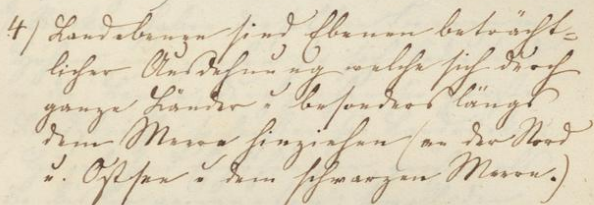 4) Landebenen sind Ebenen beträcht=
licher Ausdehnung welche sich durch
ganze Länder u besonders längs
dem Meere hinziehen (an der Nord
u. Ostsee u dem schwarzen Meere.)